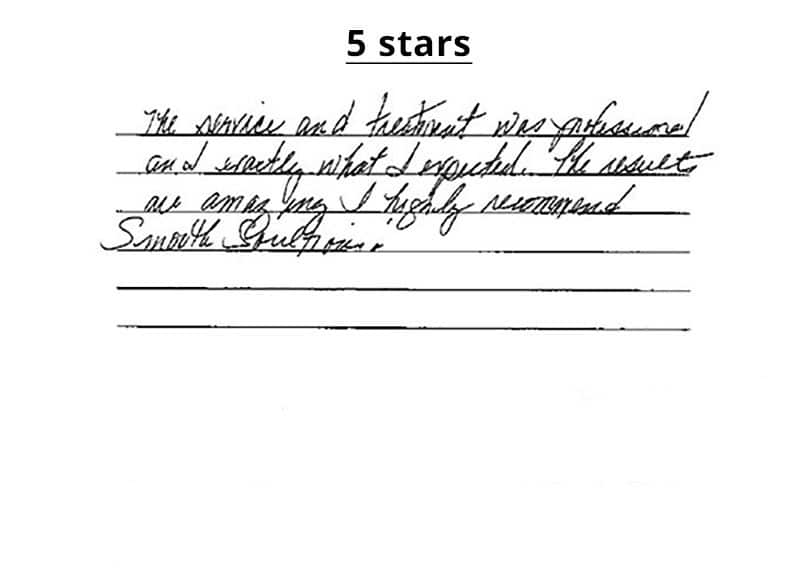 5 stars
The service and treatment was professional
and exactly what I expected. The results
are amazing I highly recommend
Smooth Soultions.